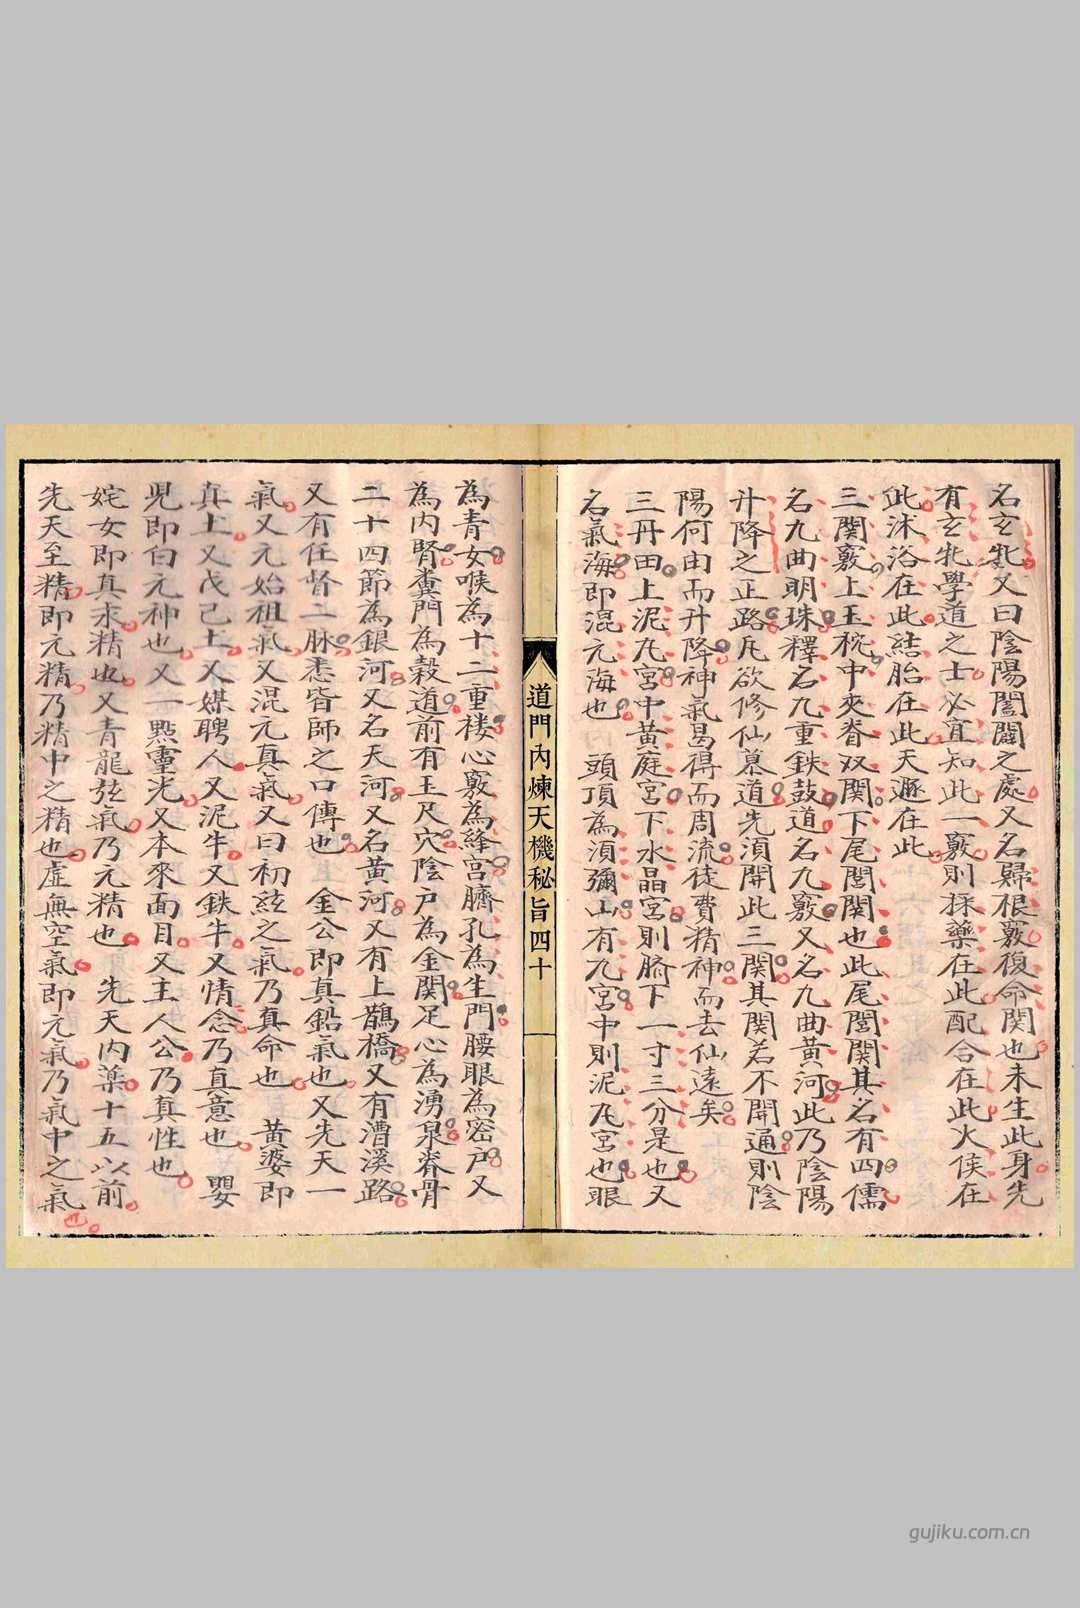 名玄牝又曰陰陽闔闢之處又名歸根竅復命関也未生此身先
有玄牝學道之士必宜知此一竅則採藥在此配合在此火侯在
此沭浴在此結胎在此天遯在此
三関竅上玉枕中夾脊双関下尾閭関也此尾閭関其名有四儒
名九曲明珠釋名九重鉄鼓道名九竅又名九曲黄河此乃陰陽
升降之正路凢欲修仙慕道先湏開此三関其関若不開通則陰
陽何由而升降神氣曷得而周流徒費精神而去仙遠矣
三丹田上泥丸宮中黄庭宮下水晶宮則臍下一寸三分是也又
名氣海即混元海也 頭頂為湏彌山有九宮中則泥丸宮也眼
道門內煉天機秘旨四十
為青女喉為十二重楼心竅為絳宮臍孔為生門腰眼為密戸又
為内腎糞門為穀道前有玉尺穴陰戶為金関足心為湧泉脊骨
二十四節為銀河又名天河又名黄河又有上鵲橋又有漕溪路
又有任督二脉悉皆師之口傳也 金公即真鉛氣也又先天一
氣又元始祖氣又混元真氣又曰初絃之氣乃真命也 黄婆即
真土又戊己土又媒聘人又泥牛又鉄牛又情念乃真意也 嬰
児即白元神也又一點靈光又本來面目又主人公乃真性也
姹女即真汞精也又青龍弦氣乃元精也 先天内藥十五以前
先天至精即元精乃精中之精也虚無空氣即元氣乃氣中之氣
也
gujiku.com.cn